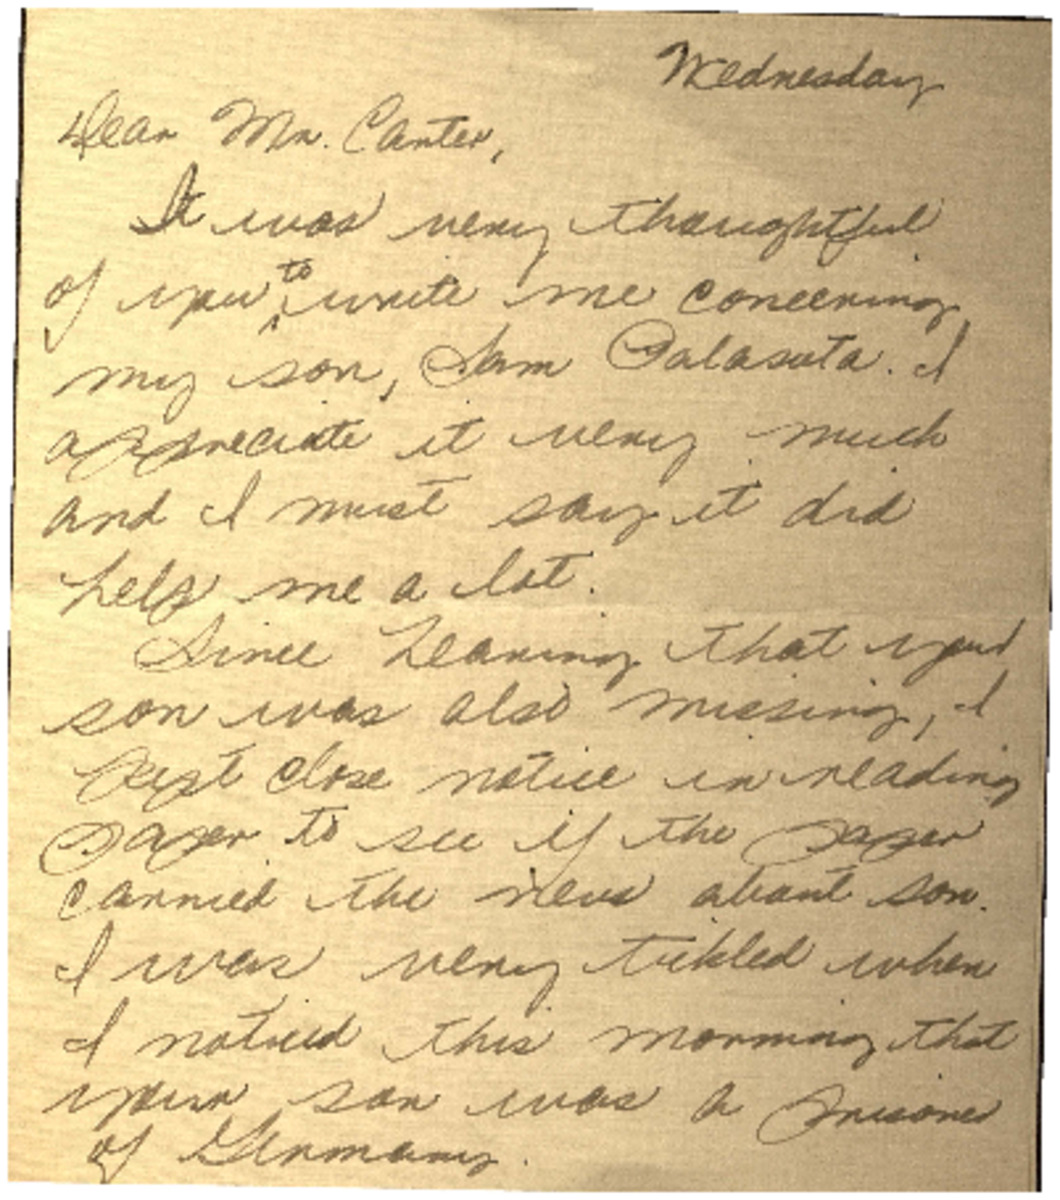 Wednesday
Dear Mr. Carter,
It was very thoughtful
of you to write me concerning
my son, Sam Palasota. I
appreciate it very much
and I must say it did
help me a lot.
Since hearing that your
son was also missing, I
kept close notice in reading
paper to see if the paper
carried the news about son.
I was very tickled when
I noticed this morning that
your son was a prisoner
of Germany.